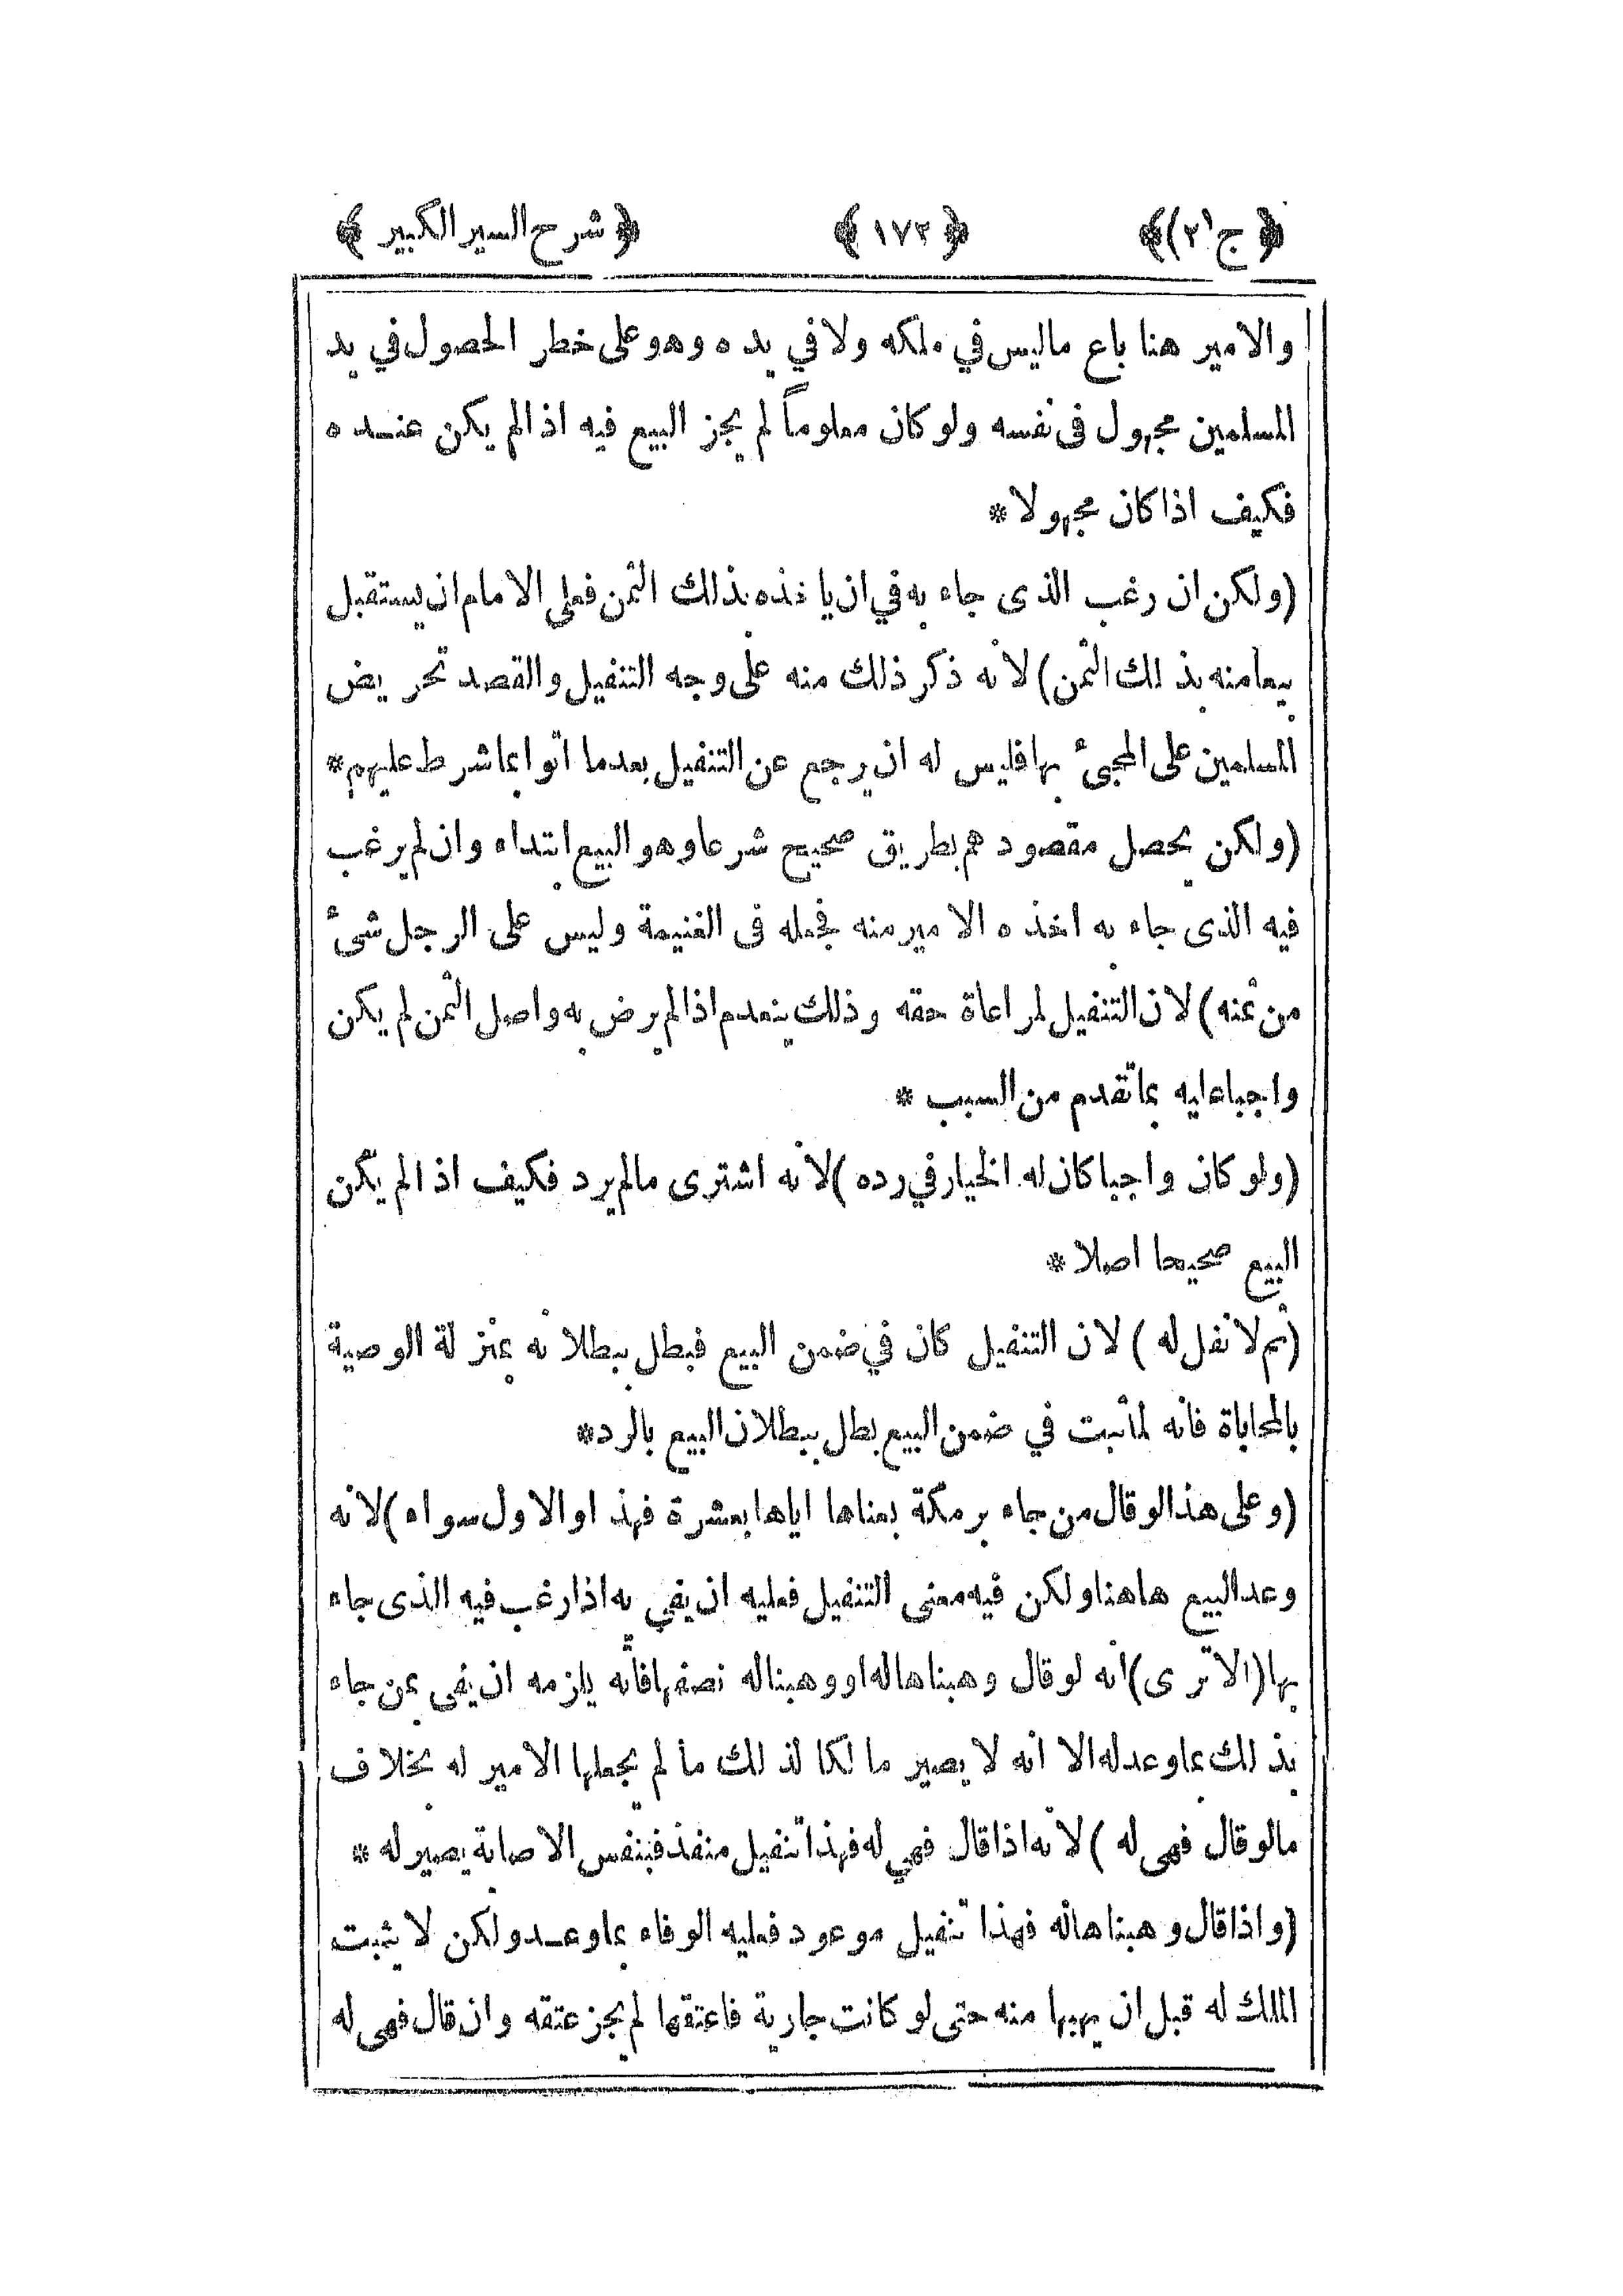 ﴿ ج ٢ ﴾ ﴿ ١٧٢ ﴾ ﴿ شرح السير الكبير ﴾
والامير هنا باع ماليس في ملكه ولا في يده وهو على خطر الحصول في يد
المسلمين مجهول فى نفسه ولو كان معلوماً لم يجز البيع فيه اذا لم يكن عنده
فكيف اذا كان مجهولا *
(ولكن ان رغب الذى جاء به في ان يا خذه بذلك الثمن فعلى الامام ان يستقبل
بيعا منه بذلك الثمن) لانه ذكر ذلك منه على وجه التنفيل والقصد تحريض
المسلمين على المجىء بها فليس له ان يرجع عن التنفيل بعدما اتوا بما شرط عليهم *
(ولكن يحصل مقصودهم بطريق صحيح شرعا وهو البيع ابتداء وان لم يرغب
فيه الذى جاء به اخذه الامير منه فجعله فى الغنيمة وليس على الرجل شىء
من ثمنه) لان التنفيل لمراعاة حقه وذلك ينعدم اذا لم يرض به واصل الثمن لم يكن
واجبا عليه بما تقدم من السبب *
(ولو كان واجبا كان له الخيار في رده) لانه اشترى مالم يرد فكيف اذا لم يكن
البيع صحيحا اصلا *
(ثم لا نفل له) لان التنفيل كان في ضمن البيع فبطل ببطلانه بمنزلة الوصية
بالمحاباة فانه لما ثبت في ضمن البيع بطل ببطلان البيع بالرد *
(وعلى هذا لو قال من جاء برمكة بعناها اياها بعشرة فهذا والاول سواء) لانه
وعد البيع هاهنا ولكن فيه معنى التنفيل فعليه ان يفي به اذا رغب فيه الذى جاء
بها (الا ترى) انه لو قال وهبناها له او وهبنا له نصفها فانه يلزمه ان يفى بمن جاء
بذلك بما وعد له الا انه لا يصير مالكا لذلك ما لم يجعلها الامير له بخلاف
مالو قال فهى له) لانه اذا قال فهي له فهذا تنفيل منفذ فبنفس الاصابة يصير له *
(واذا قال وهبناها له فهذا تنفيل موعود فعليه الوفاء بما وعد ولكن لا يثبت
الملك له قبل ان يهبها منه حتى لو كانت جارية فاعتقها لم يجز عتقه وان قال فهى له